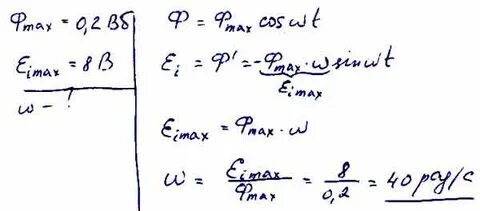 Φmax = 0,2 Вб
Ɛi max = 8 В
ω - ?
Φ = Φmax cos ωt
Ɛi = Φ' = -Φmax · ω sin ωt
Ɛi max
Ɛi max = Φmax · ω
ω = Ɛi max / Φmax = 8 / 0,2 = 40 рад/с